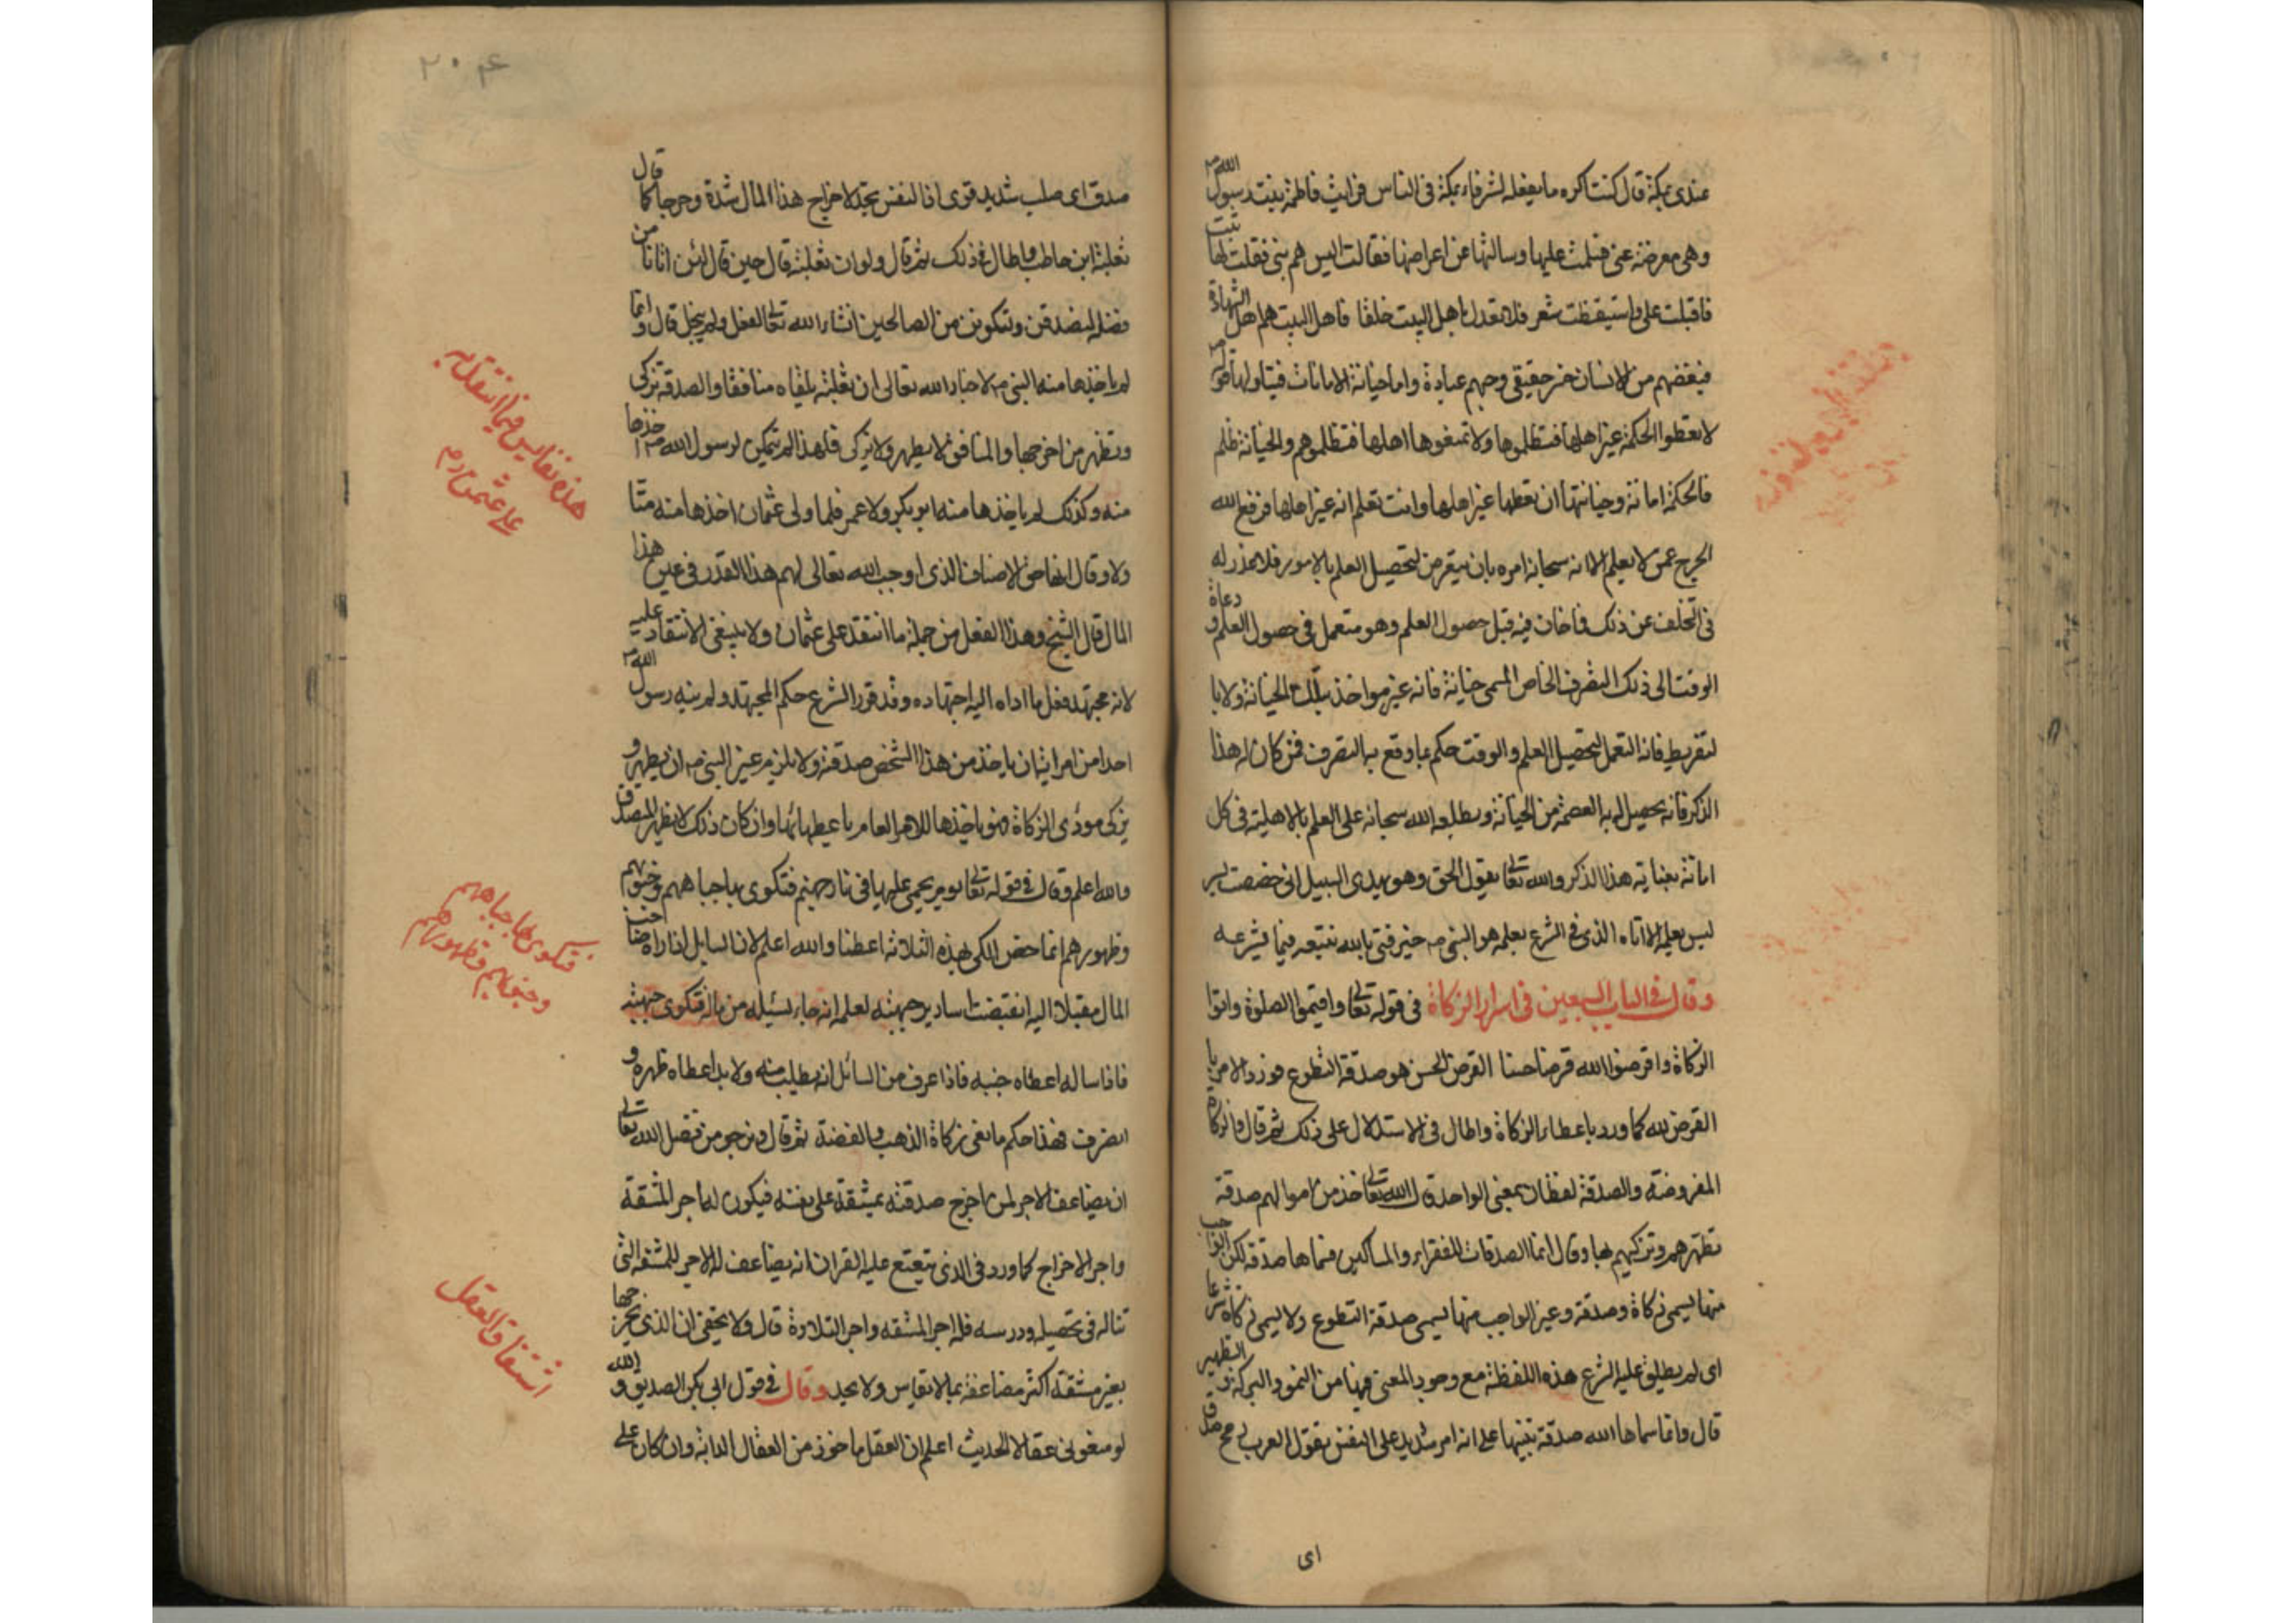 عندى بمكة قال كنت اكره ما يفعله الشرفاء بمكة فى الناس فرايت فاطمة بنت رسول الله ص
وهى معرضة عنى فسلمت عليها وسالتها عن اعراضها فقالت اليس هم بنى فقلت لها تبت
فاقبلت على واستيقظت شعر فلا تعدل باهل البيت خلقا فاهل البيت هم اهل الشهادة
فبغضهم من الانسان خسر حقيقى وحبهم عبادة واما خيانة الامانات فيتاولها قوله ص
لا تعطوا الحكمة غير اهلها فتظلموها ولا تمنعوها اهلها فتظلموهم والخيانة ظلم
فالحكمة امانة وخيانتها ان تعطها غير اهلها وانت تعلم انه غير اهلها فرفع الله
الحرج عمن لا يعلم الا انه سبحانه امره بان يتعرض لتحصيل العلم بالامور فلا عذر له
فى التخلف عن ذلك فاخان فيه قبل حصول العلم وهو متعمل فى حصول العلم و دعاه
الوقت الى ذلك التصرف الخاص المسمى خيانة فانه غير مواخذ بتلك الخيانة ولا با
لتفريط فانه التعمل لتحصيل العلم والوقت حكم بما وقع به التصرف فمن كان له هذا
الذكر فانه يحصيل له به العصمة من الخيانة ويطلعه الله سبحانه على العلم بالاهلية فى كل
امانة بعناية هذا الذكر والله تعالى يقول الحق وهو يهدى السبيل انى خصصت لسر
ليس يعلمه الا انا والذى فى الشرع يعلمه هو النبى ص خير فتى بالله نتبعه فيما يشرعه
وقال فى الباب السبعين فى اسرار الزكاة فى قوله تعالى واقيموا الصلوة واتوا
الزكاة واقرضوا الله قرضا حسنا القرض الحسن هو صدقة التطوع فورد الامر با
القرض لله كما ورد باعطاء الزكاة واطال فى الاستدلال على ذلك ثم قال والزكاة
المفروضة والصدقة لفظان بمعنى الواحد قال الله تعالى خذ من اموالهم صدقة
تطهرهم وتزكيهم بها وقال انما الصدقات للفقراء والمساكين فسماها صدقة لكن الواجب
منها يسمى زكاة وصدقة وغير الواجب منها يسمى صدقة التطوع ولا يسمى زكاة شرعا
اى لم يطلق عليه الشرع هذه اللفظة مع وجود المعنى فيها من النمو والبركة و التطهير
قال وانما سماها الله صدقة تنبيها على انه امر شديد على النفس تقول العرب رمح صدق
اى
٢٠٤
صدق اى صلب شديد قوى اذ النفس تجد لاخراج هذا المال شدة وحرجا كما قال
ثعلبة ابن حاطب واطال فى ذلك ثم قال ولو ان ثعلبة قال حين قال لئن اتانا من
فضله لنصدقن ولنكونن من الصالحين انشاء الله تعالى لفعل ولم يبخل قال و انما
لم ياخذها منه النبى ص لاخبار الله تعالى ان ثعلبة يلقاه منافقا والصدقة تزكى
وتطهر من اخرجها والمنافق لا يطهر ولا يزكى فلهذا لم يتمكن لرسول الله ص اخذها
منه وكذلك لم ياخذها منه ابو بكر ولا عمر فلما ولى عثمان اخذها منه متا
ولا وقال انها حق الاصناف الذى اوجب الله تعالى لهم هذا القدر فى عين هذا
المال قال الشيخ وهذا الفعل من جملة ما انتقد على عثمان ولا ينبغى الانتقاد عليه
لانه مجتهد فعل ما اداه اليه اجتهاده وقد قرر الشرع حكم المجتهد ولم ينه رسول الله ص
احدا من امرائه ان ياخذ من هذا الشخص صدقة ولا يلزم غير النبى ص ان يطهر و
يزكى مودى الزكاة فهو ياخذها للامر العام باعطائها وان كان ذلك لا يطهر المصدق
والله اعلم وقال فى قوله تعالى يوم يحمى عليها فى نار جهنم فتكوى بها جباههم وجنوبهم
وظهورهم انما خص الكى بهذه الثلاثة اعضا والله اعلم لان السايل اذا راه صاحب
المال مقبلا اليه انقبضت اسارير جبهته لعلمه انه جاء يسئله من ماله فتكوى جبهته
فاذا ساله اعطاه جنبه فاذا عرف من السائل انه يطلب منه ولا بد اعطاه ظهره و
انصرف فهذا حكم مانعى زكاة الذهب والفضة ثم قال ونرجو من فضل الله تعالى
ان يضاعف الاجر لمن اخرج صدقته بمشقة على نفسه فيكون له اجر المشقة
واجر الاخراج كما ورد فى الذى يتعتع عليه القران انه يضاعف له الاجر للمشقة التى
تناله فى تحصيله ودرسه فله اجر المشقة واجر التلاوة قال ولا يخفى ان الذى يخرجها
بغير مشقة اكثر مضاعفة بما لا يقاس ولا يحد وقال فى قول ابى بكر الصديق والله
لو منعونى عقالا الحديث اعلم ان العقل ماخوذ من العقال الدابة وان كان على
هذه نفايس فيما انتقد به
على عثمن رم
فتكوى بها جباههم
وجنوبهم وظهورهم
اشتقاق العقل